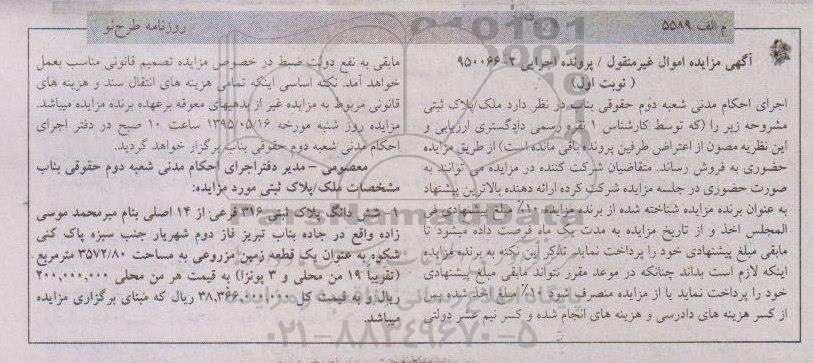 م الف ۵۵۸۹
روزنامه طرح نو
آگهی مزایده اموال غیرمنقول / پرونده اجرایی ۲-۹۵۰۰۶۶
( نوبت اول)
اجرای احکام مدنی شعبه دوم حقوقی بناب در نظر دارد ملک/پلاک ثبتی
مشروحه زیر را (که توسط کارشناس ۱ نفره رسمی دادگستری ارزیابی و
این نظریه مصون از اعتراض طرفین پرونده باقی مانده است) از طریق مزایده
حضوری به فروش رساند. متقاضیان شرکت کننده در مزایده می توانند به
صورت حضوری در جلسه مزایده شرکت کرده ارائه دهنده بالاترین پیشنهاد
به عنوان برنده مزایده شناخته شده از برنده مزایده ۱۰٪ مبلغ پیشنهادی فی
المجلس اخذ و از تاریخ مزایده به مدت یک ماه فرصت داده میشود تا
مابقی مبلغ پیشنهادی خود را پرداخت نماید. تذکر این نکته به برنده مزایده
اینکه لازم است بداند چنانکه در موعد مقرر نتواند مابقی مبلغ پیشنهادی
خود را پرداخت نماید یا از مزایده منصرف شود ۱۰٪ مبلغ اخذ شده پس
از کسر هزینه های دادرسی و هزینه های انجام شده و کسر نیم عشر دولتی
مابقی به نفع دولت ضبط در خصوص مزایده تصمیم قانونی مناسب بعمل
خواهد آمد. نکته اساسی اینکه تمامی هزینه های انتقال سند و هزینه های
قانونی مربوط به مزایده غیر از بدهیهای معوقه برعهده برنده مزایده میباشد.
مزایده روز شنبه مورخه ۱۳۹۵/۰۵/۱۶ ساعت ۱۰ صبح در دفتر اجرای
احکام مدنی شعبه دوم حقوقی بناب برگزار خواهد گردید.
معصومی – مدیر دفتراجرای احکام مدنی شعبه دوم حقوقی بناب
مشخصات ملک/پلاک ثبتی مورد مزایده:
۱- شش دانگ پلاک ثبتی ۳۱۶ فرعی از ۱۴ اصلی بنام میرمحمد موسی
زاده واقع در جاده بناب تبریز فاز دوم شهریار جنب سبزه پاک کنی
شکوه به عنوان یک قطعه زمین مزروعی به مساحت ۳۵۷۲/۸۰ مترمربع
(تقریبا ۱۹ من محلی و ۳ پونزا) به قیمت هر من محلی ۲۰۰,۰۰۰,۰۰۰
ریال و به قیمت کل ریال که مبنای برگزاری مزایده
میباشد.
ParsNamadData
پایگاه اطلاع رسانی مناقصه و مزایده
۰۲۱-۸۸۳۴۹۶۷۰-۵